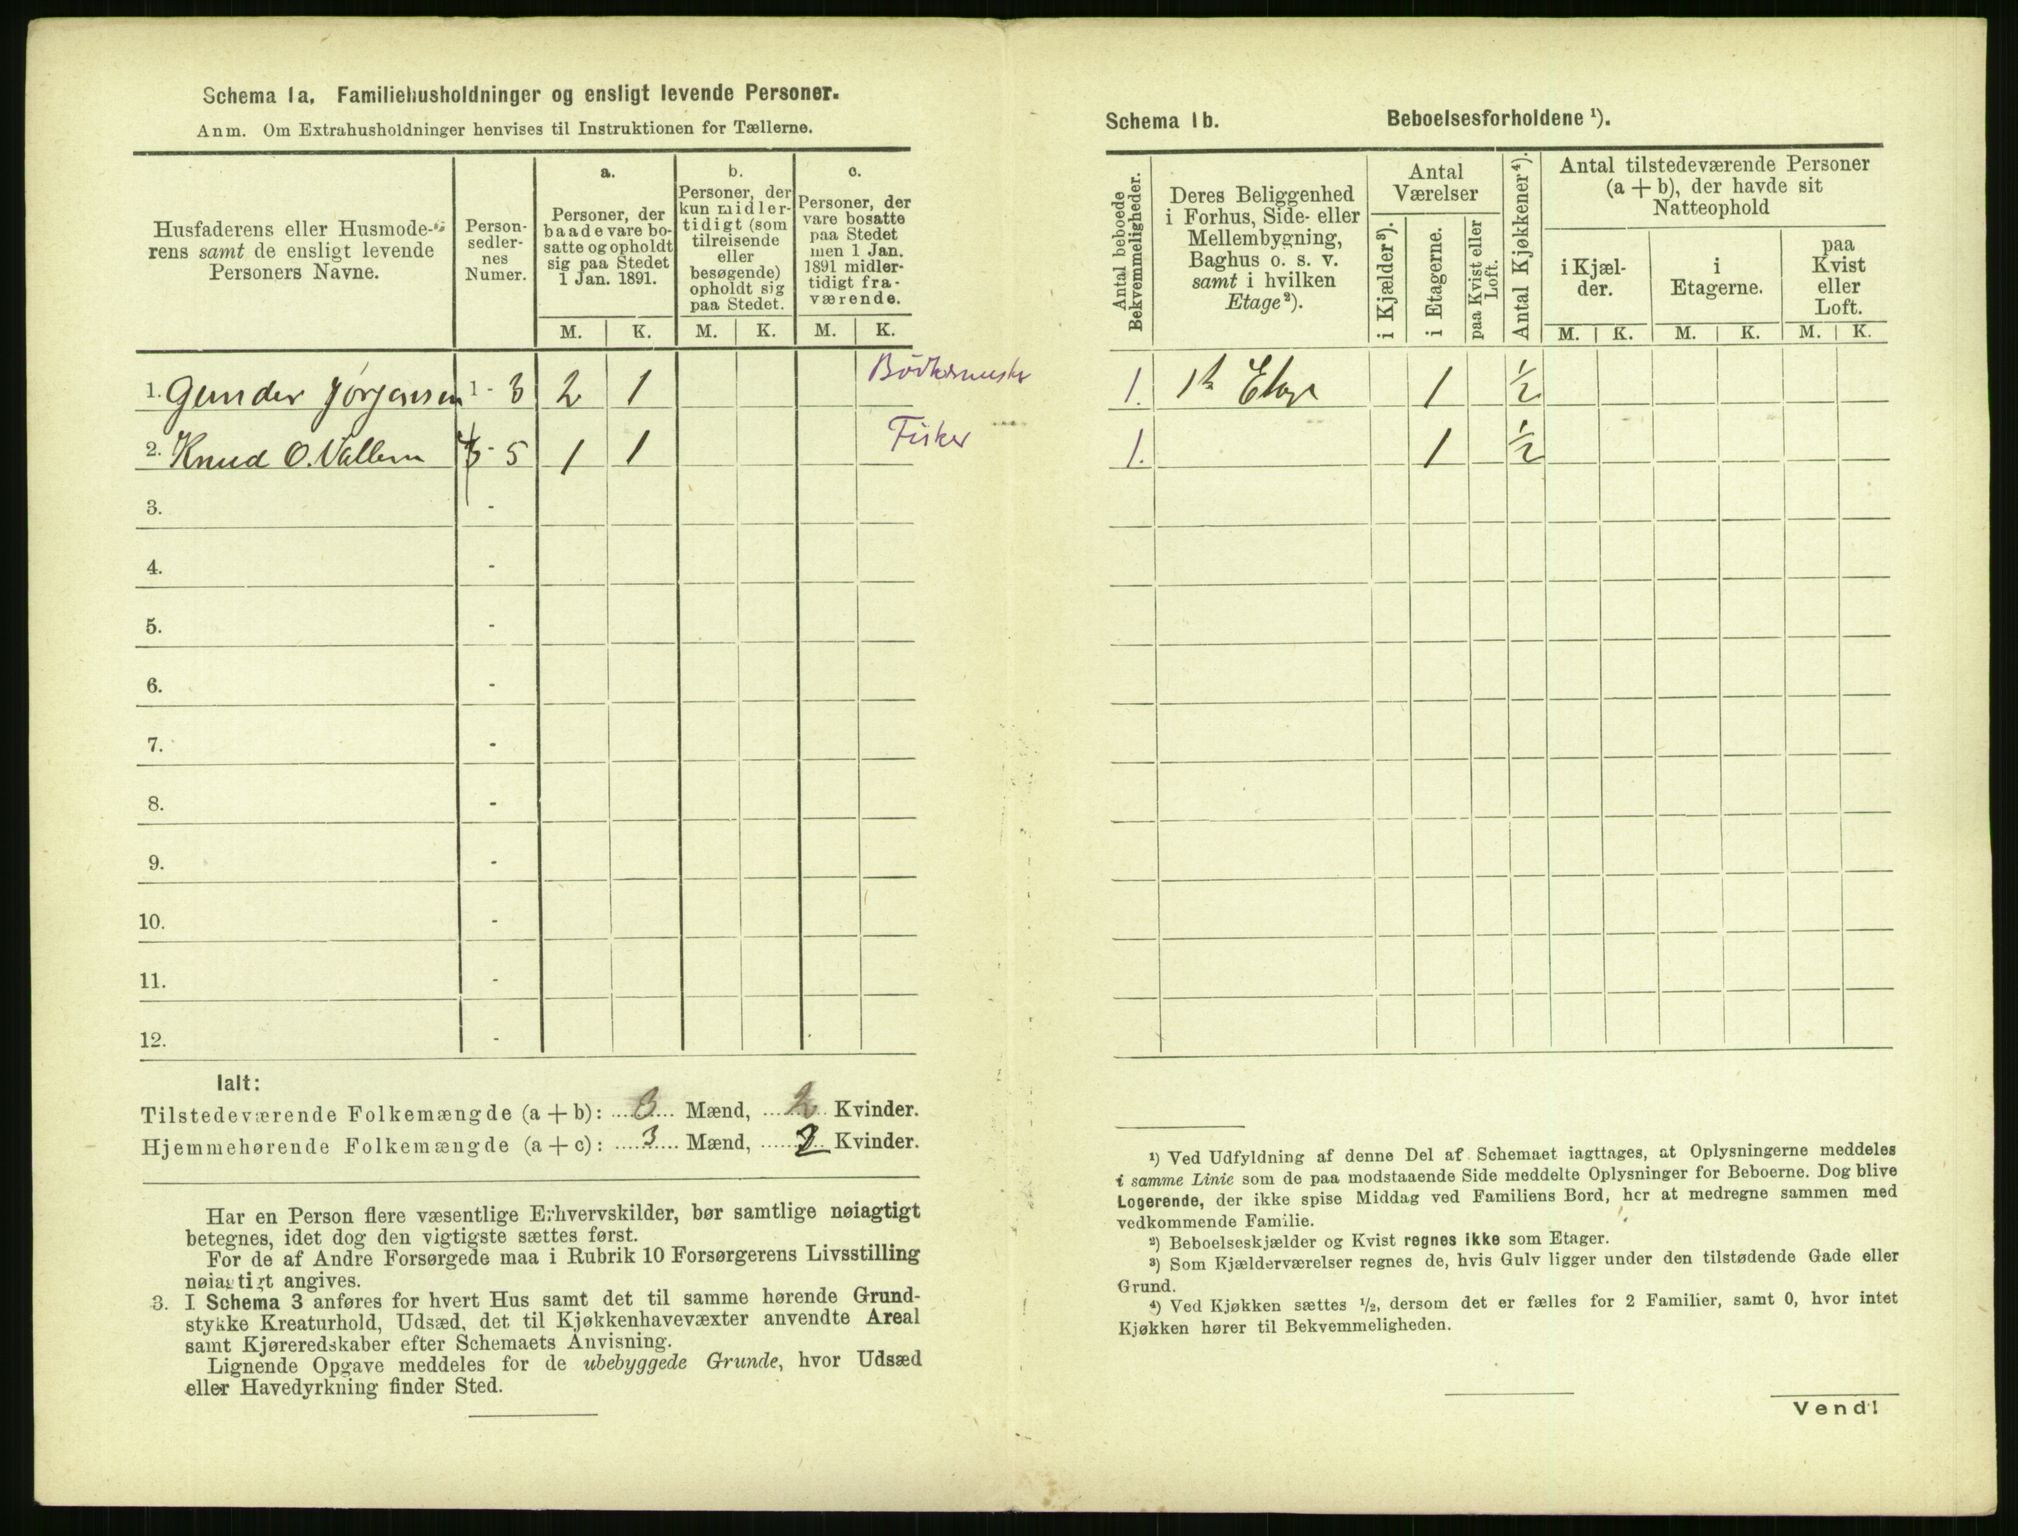 Schema 1a. Familiehusholdninger og ensligt levende Personer.
Anm. Om Extrahusholdninger henvises til Instruktionen for Tællerne.
Husfaderens eller Husmode-
rens samt de ensligt levende
Personers Navne.
Person-
sedler-
nes
Numer.
a.
Personer, der
baade vare bo-
satte og opholdt
sig paa Stedet
1 Jan. 1891.
b.
Personer, der
kun midler-
tidigt (som
tilreisende
eller
besøgende)
opholdt sig
paa Stedet.
c.
Personer, der
vare bosatte
paa Stedet
men 1 Jan.
1891 midler-
tidigt fra-
værende.
M. K. M. K. M. K.
1. Gunder Jørgensen 1 - 3 2 1
2. Knud O. Vallem - 5 1 1 Fisker
3. -
4. -
5. -
6. -
7. -
8. -
9. -
10. -
11. -
12. -
Ialt:
Tilstedeværende Folkemængde (a + b): 3 Mænd, 2 Kvinder.
Hjemmehørende Folkemængde (a + c): 3 Mænd, 2 Kvinder.
Har en Person flere væsentlige Erhvervskilder, bør samtlige nøiagtigt
betegnes, idet dog den vigtigste sættes først.
For de af Andre Forsørgede maa i Rubrik 10 Forsørgerens Livsstilling
nøiagtigt angives.
3. I Schema 3 anføres for hvert Hus samt det til samme hørende Grund-
stykke Kreaturhold, Udsæd, det til Kjøkkenhavevæxter anvendte Areal
samt Kjøreredskaber efter Schemaets Anvisning.
Lignende Opgave meddeles for de ubebyggede Grunde, hvor Udsæd
eller Havedyrkning finder Sted.
Schema 1b. Beboelsesforholdene ¹).
Antal beboede
Bekvemmeligheder.
Deres Beliggenhed
i Forhus, Side- eller
Mellembygning,
Baghus o. s. v.
samt i hvilken
Etage²).
Antal
Værelser
i Kjælder³).
i Etagerne.
paa Kvist eller
Loft.
Antal Kjøkkener⁴).
Antal tilstedeværende Personer
(a + b), der havde sit
Natteophold
i Kjæl-
der.
i
Etagerne.
paa
Kvist
eller
Loft.
M. K. M. K. M. K.
1. Etage 1 ½
1. 1 ½
¹) Ved Udfyldning af denne Del af Schemaet iagttages, at Oplysningerne meddeles
i samme Linie som de paa modstaaende Side meddelte Oplysninger for Beboerne. Dog blive
Logerende, der ikke spise Middag ved Familiens Bord, her at medregne sammen med
vedkommende Familie.
²) Beboelseskjælder og Kvist regnes ikke som Etager.
³) Som Kjælderværelser regnes de, hvis Gulv ligger under den tilstødende Gade eller
Grund.
⁴) Ved Kjøkken sættes ½, dersom det er fælles for 2 Familier, samt 0, hvor intet
Kjøkken hører til Bekvemmeligheden.
Vend!